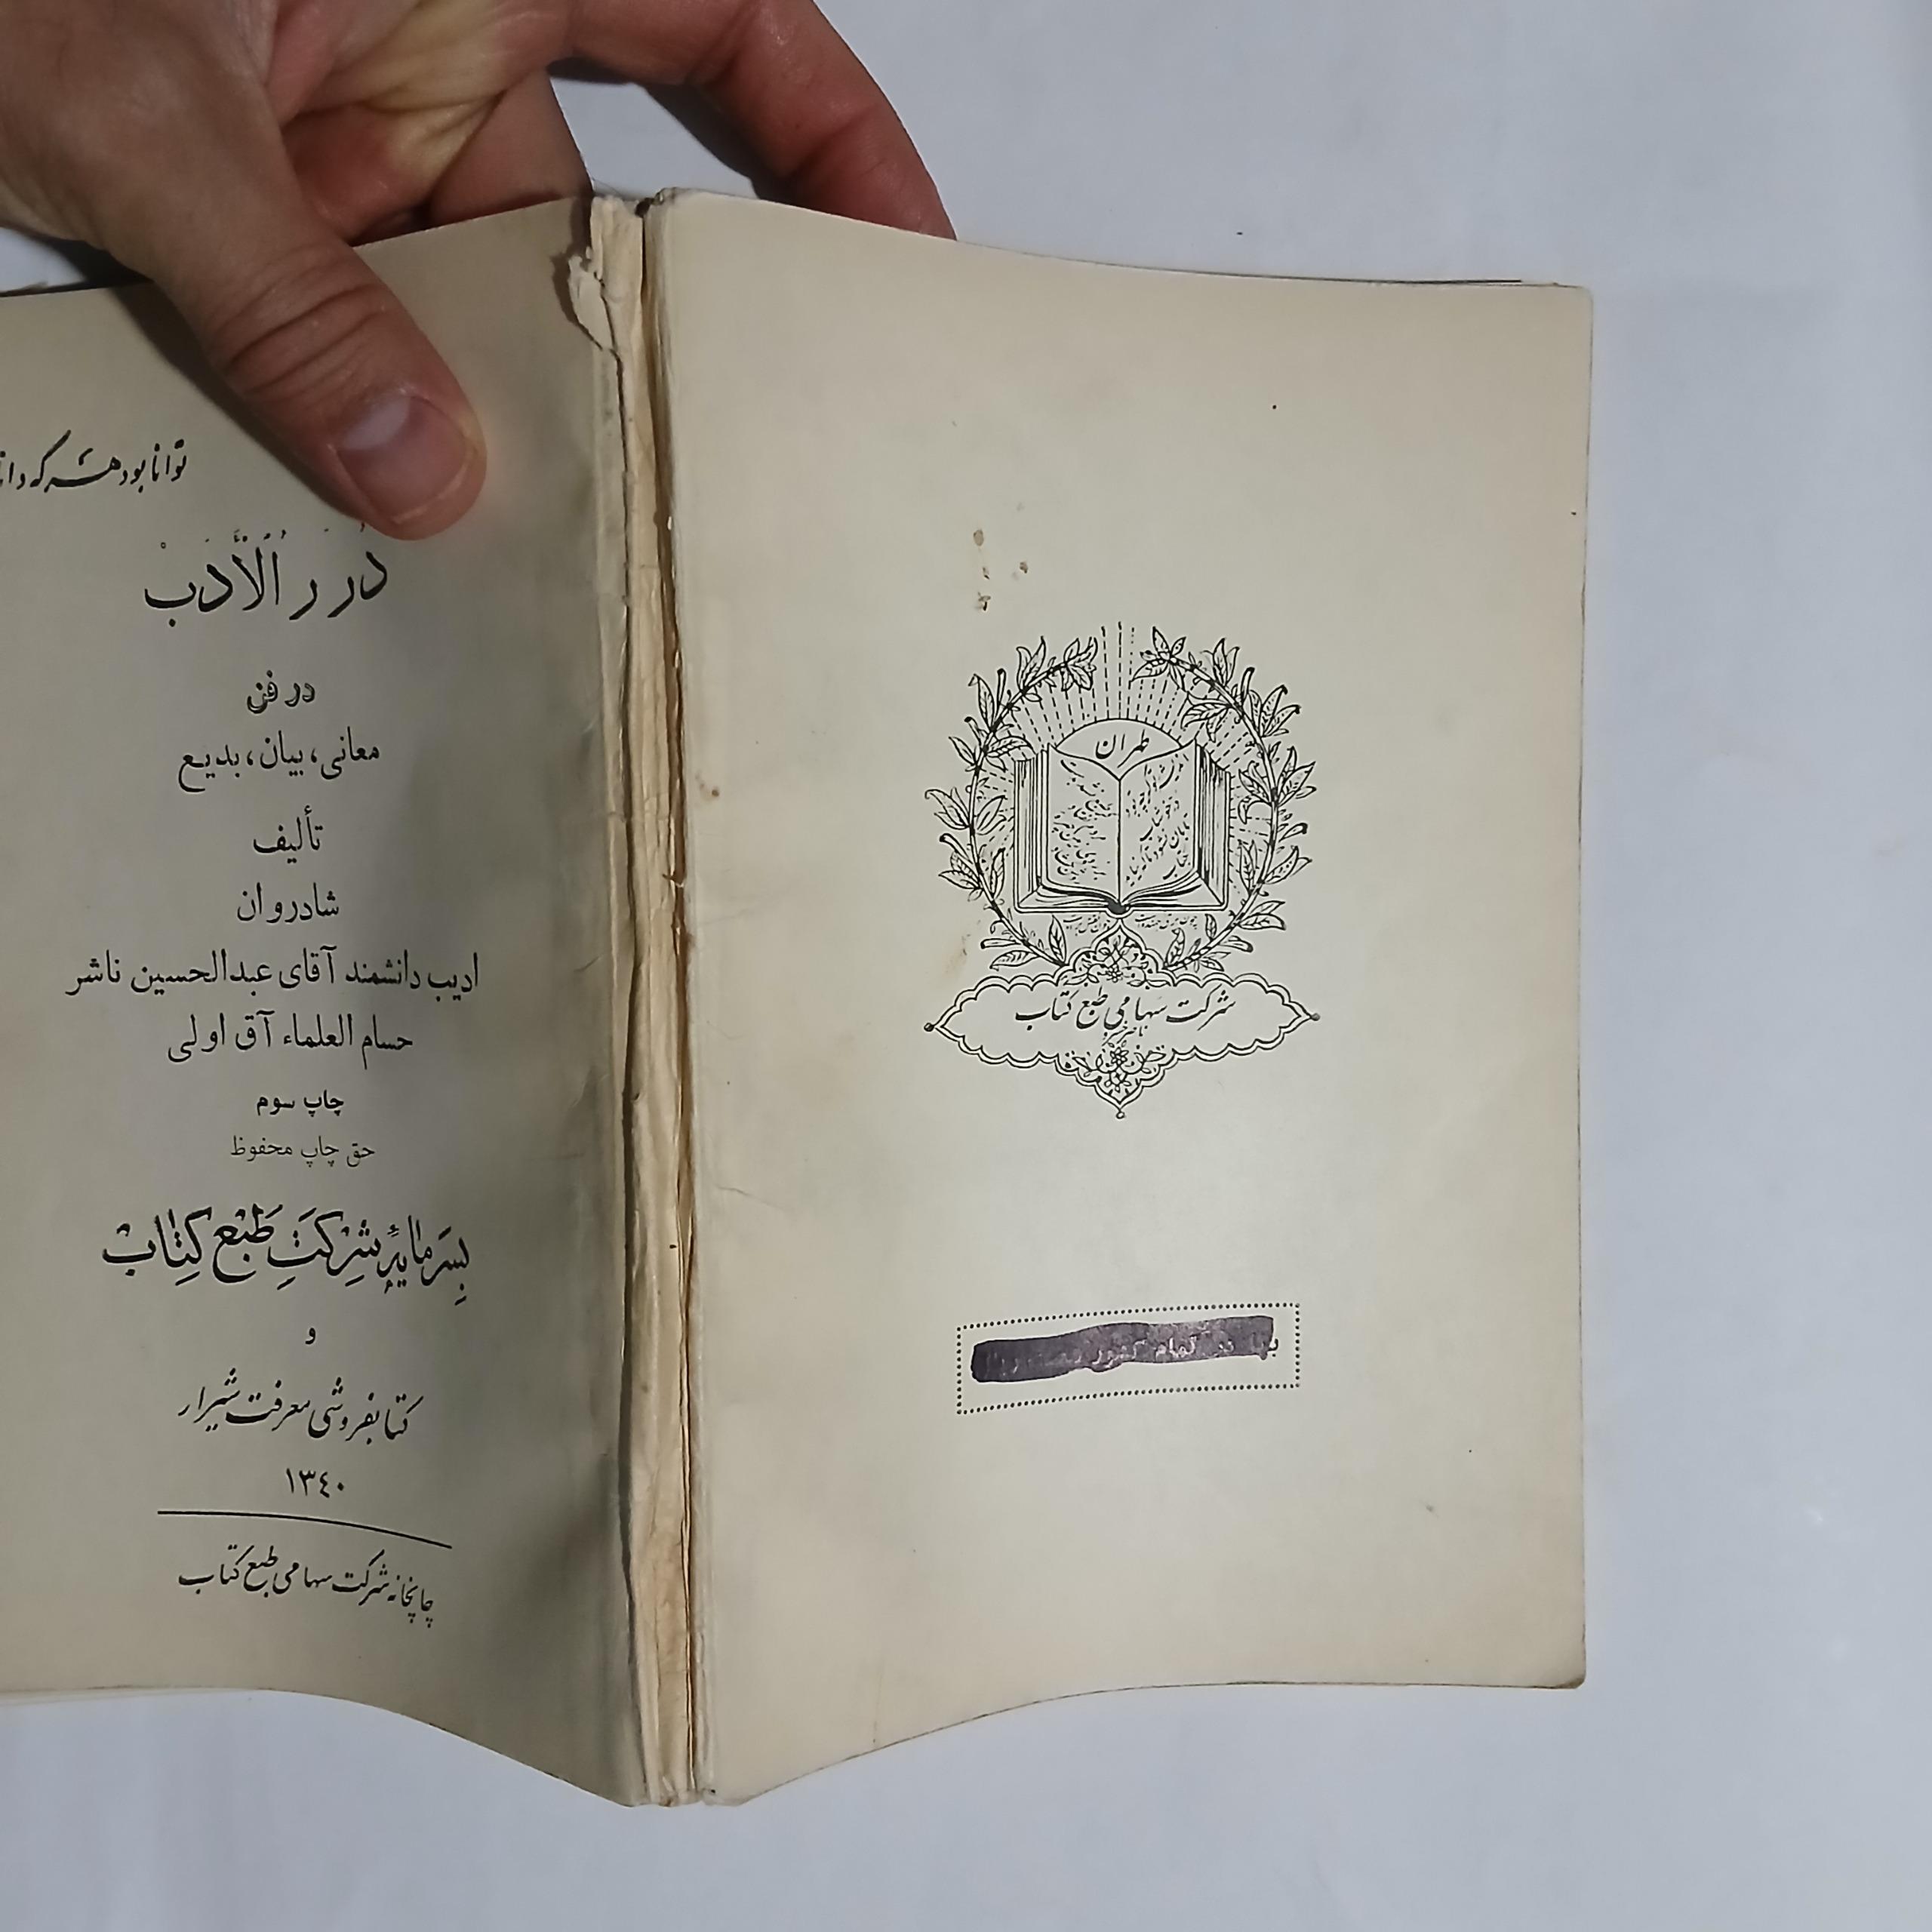 توانا بود هر که
دُرَرُ الْأَدَبْ
در فن
معانی، بیان، بدیع
تألیف
شادروان
ادیب دانشمند آقای عبدالحسین ناشر
حسام العلماء آق اولی
چاپ سوم
حق چاپ محفوظ
بسرمایهٔ شرکت طبع کتاب
و
کتابفروشی معرفت شیراز
۱۳٤۰
چاپخانه شرکت سهامی طبع کتاب
طهران
شرکت سهامی طبع کتاب
بها در تمام کشور